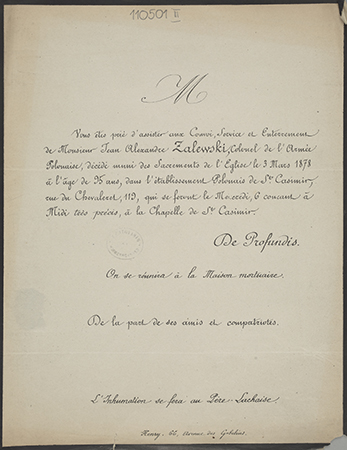 110501 II
M
Vous êtes prié d'assister aux Convoi, Service et Enterrement
de Monsieur Jean Alexandre Zalewski, Colonel de l'Armée
Polonaise, décédé muni des Sacrements de l'Eglise le 3 Mars 1878
à l'âge de 75 ans, dans l'établissement Polonais de St. Casimir,
rue du Chevaleret, 119, qui se feront le Mercredi, 6 courant à
Midi très précis, à la Chapelle de St. Casimir.
De Profundis.
On se réunira à la Maison mortuaire.
De la part de ses amis et compatriotes.
L'Inhumation se fera au Père Lachaise.
Henry - 66, Avenue des Gobelins.